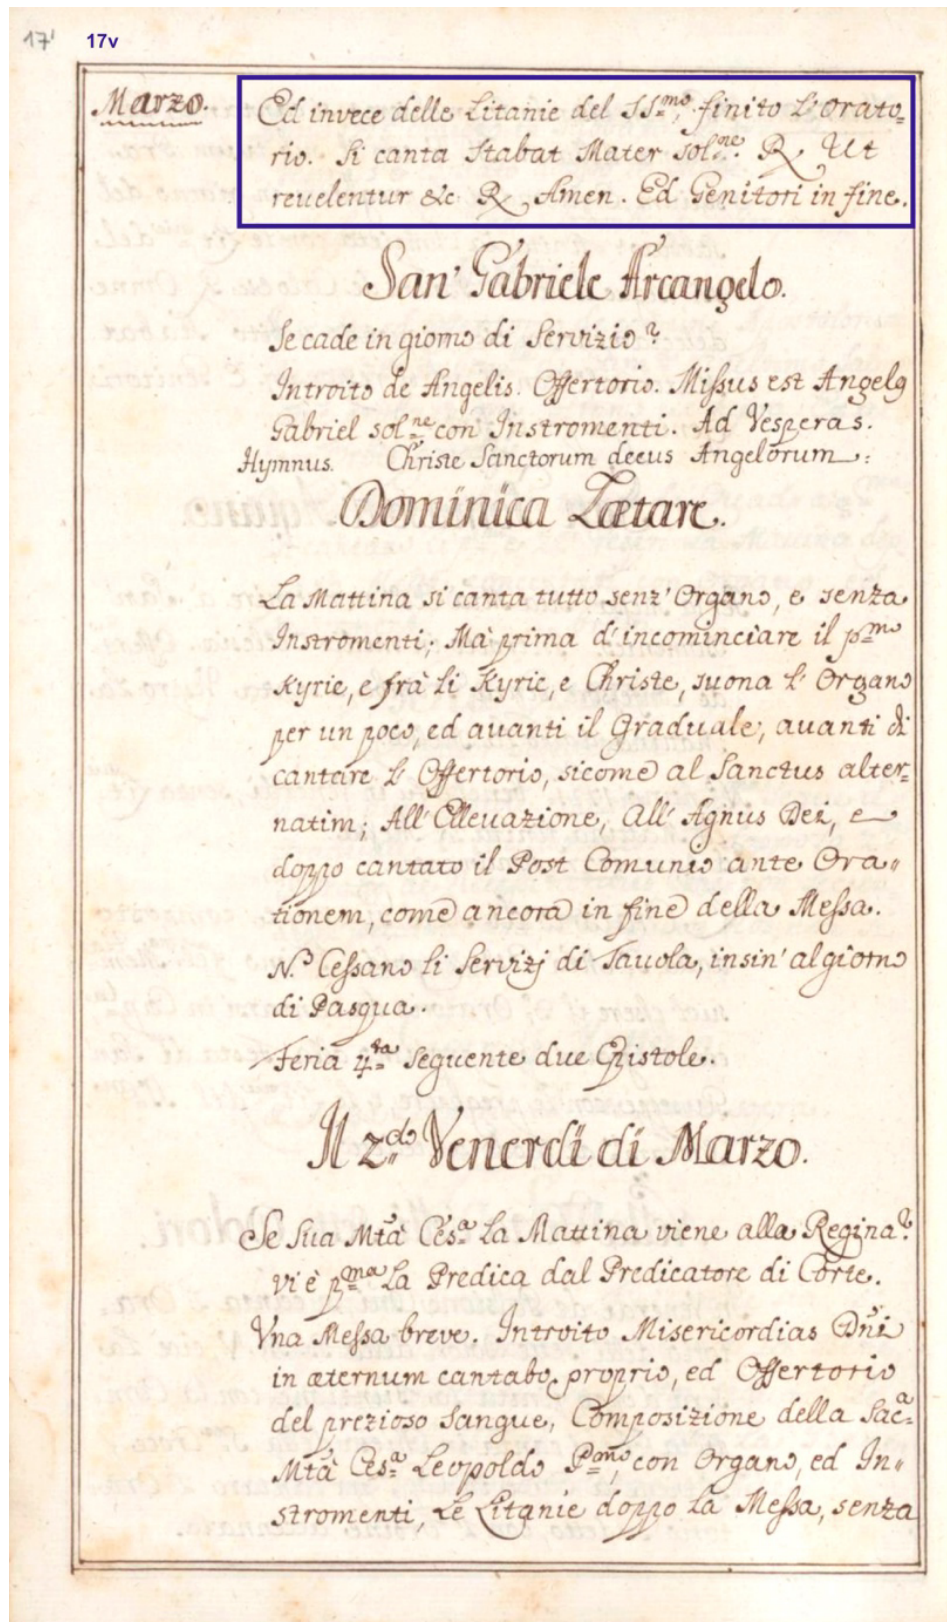 17' 17v
Marzo.
Ed invece delle Litanie del SS.mo, finito l'Orato=
rio. Si canta Stabat Mater sol.ne. ℟ Ut
revelentur &c ℟ Amen. Ed Genitori in fine.
San' Gabriele Arcangelo.
Se cade in giorno di Servizio?
Introito de Angelis. Offertorio. Missus est Angelꝰ
Gabriel sol.ne con Instromenti. Ad Vesperas.
Hymnus. Christe Sanctorum decus Angelorum:
Dominica Lætare.
La Mattina si canta tutto senz' Organo, e senza
Instromenti; Mà prima d'incominciare il p.mo
Kyrie, e frà li Kyrie, e Christe, suona l'Organo
per un poco, ed avanti il Graduale, avanti di
cantare l'Offertorio, sicome al Sanctus alter=
natim; All' Ellevazione, All' Agnus Dei, e
doppo cantato il Post Comunio ante Ora„
tionem, come ancora in fine della Messa.
N.º Cessano li Servizj di Tavola, insin' al giorno
di Pasqua.
Feria 4.ta seguente due Epistole.
Il 2.do Venerdi di Marzo.
Se Sua Mtà Ces.a La Mattina viene alla Regina?
vi è p.ma La Predica dal Predicatore di Corte.
Una Messa breve. Introito Misericordias Dñi
in æternum cantabo, proprio, ed Offertorio
del prezioso Sangue, Composizione della Sac.a
Mtà Ces.a Leopoldo P.mo, con Organo, ed In„
stromenti, Le Litanie doppo la Messa, senza